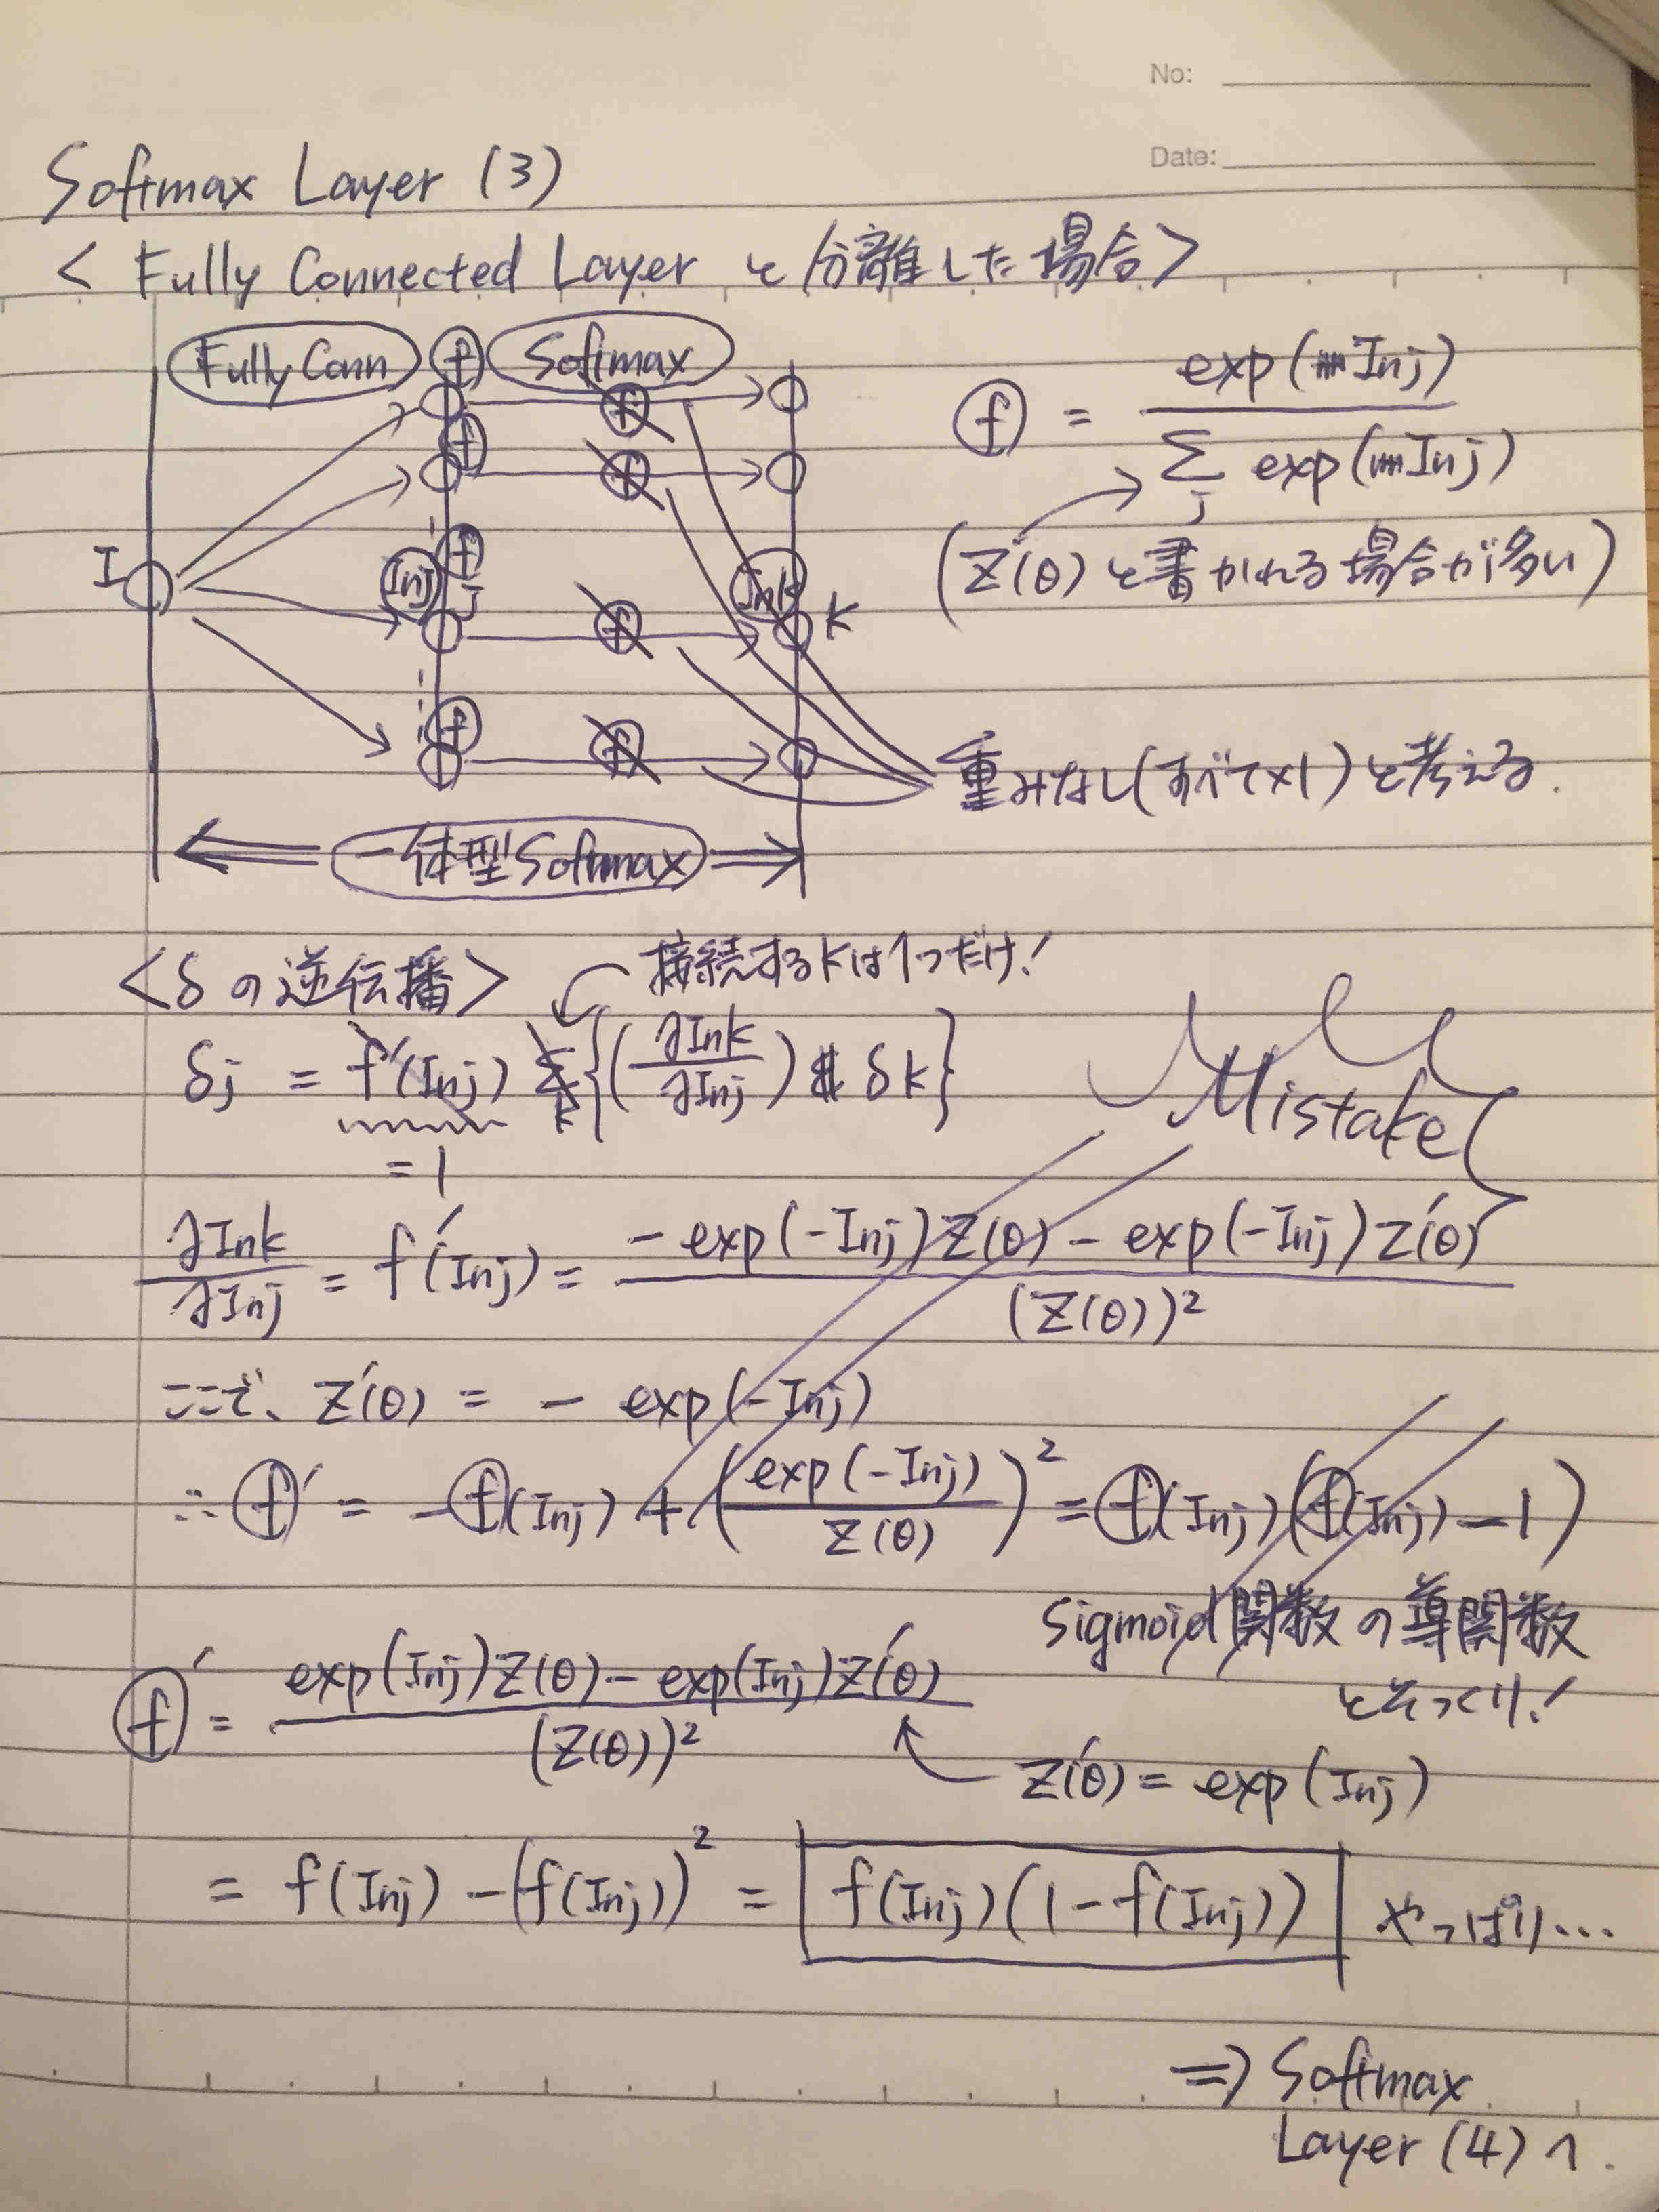 No:
Date:
Softmax Layer (3)
< Fully Connected Layer と分離した場合>
Fully Conn f Softmax
f
f
f
f
I
Inj f j
f
Ink k
f
f
一体型Softmax
f = exp(Inj) / Σj exp(Inj)
(Z(θ) と書かれる場合が多い)
重みなし(すべて×1)と考える.
<δの逆伝播>
接続するkは1つだけ!
δj = f'(Inj) Σk {(∂Ink/∂Inj) δk}
= 1
Mistake
∂Ink/∂Inj = f'(Inj) = (-exp(-Inj)Z(θ) - exp(-Inj)Z'(θ)) / (Z(θ))²
ここで、Z'(θ) = - exp(-Inj)
∴ f' = -f(Inj) + (exp(-Inj)/Z(θ))² = f(Inj)(f(Inj)-1)
Sigmoid関数の導関数
とそっくり!
f' = (exp(Inj)Z(θ) - exp(Inj)Z'(θ)) / (Z(θ))²
Z'(θ) = exp(Inj)
= f(Inj) - (f(Inj))² = f(Inj)(1-f(Inj)) やっぱり...
⇒ Softmax
Layer (4) へ.